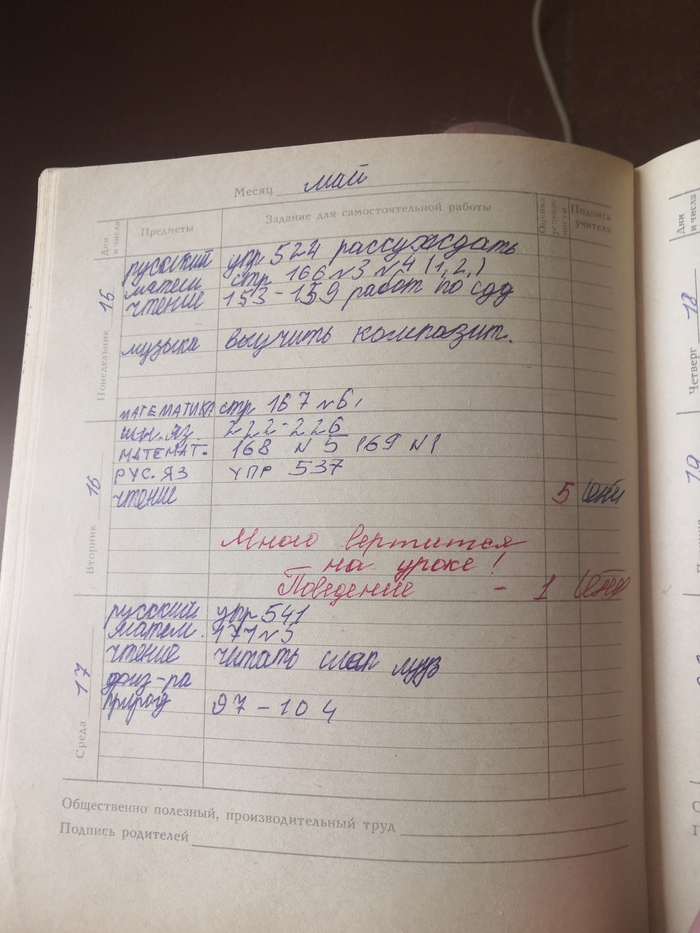 Месяц май
Дни и числа
Предметы
Задание для самостоятельной работы
Оценка успеваемости
Подпись учителя
Понедельник 15
русский упр 524 рассуждать
матем стр 166 №3 №4 (1,2,)
чтение 153-159 работ по
музыка выучить композит.
МАТЕМАТИКА стр 167 №6,
Вторник 16
222-226
МАТЕМАТ. 168 №5 169 №1
РУС. ЯЗ УПР 537
чтение 5
Много вертится
на уроке!
Поведение - 1
Среда 17
русский упр 541
матем. 171 №5
чтение читать
физ-ра
природ 97-104
Общественно полезный, производительный труд
Подпись родителей
Дни и числа
Четверг 18
19